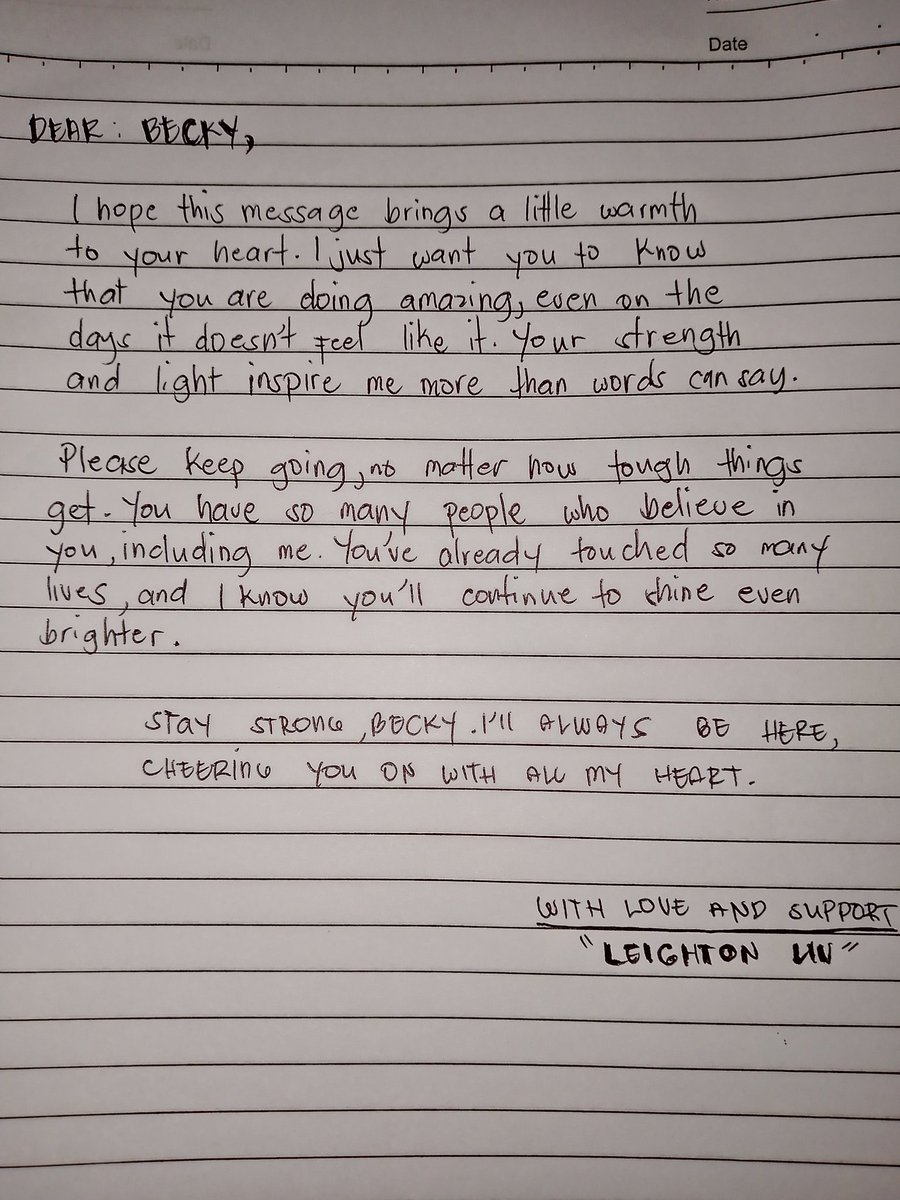 Date
DEAR: BECKY,
I hope this message brings a little warmth
to your heart. I just want you to know
that you are doing amazing, even on the
days it doesn't feel like it. Your strength
and light inspire me more than words can say.
Please keep going, no matter how tough things
get. You have so many people who believe in
you, including me. You've already touched so many
lives, and I know you'll continue to shine even
brighter.
STAY STRONG, BECKY. I'll ALWAYS BE HERE,
CHEERING YOU ON WITH ALL MY HEART.
WITH LOVE AND SUPPORT
"LEIGHTON